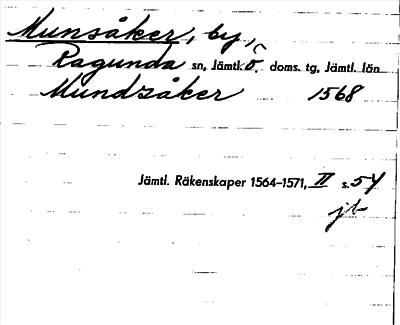 Munsåker, by,
Ragunda sn, Jämtl. ö. doms. tg, Jämtl. län
Mundzåker 1568
Jämtl. Räkenskaper 1564–1571, II s. 54